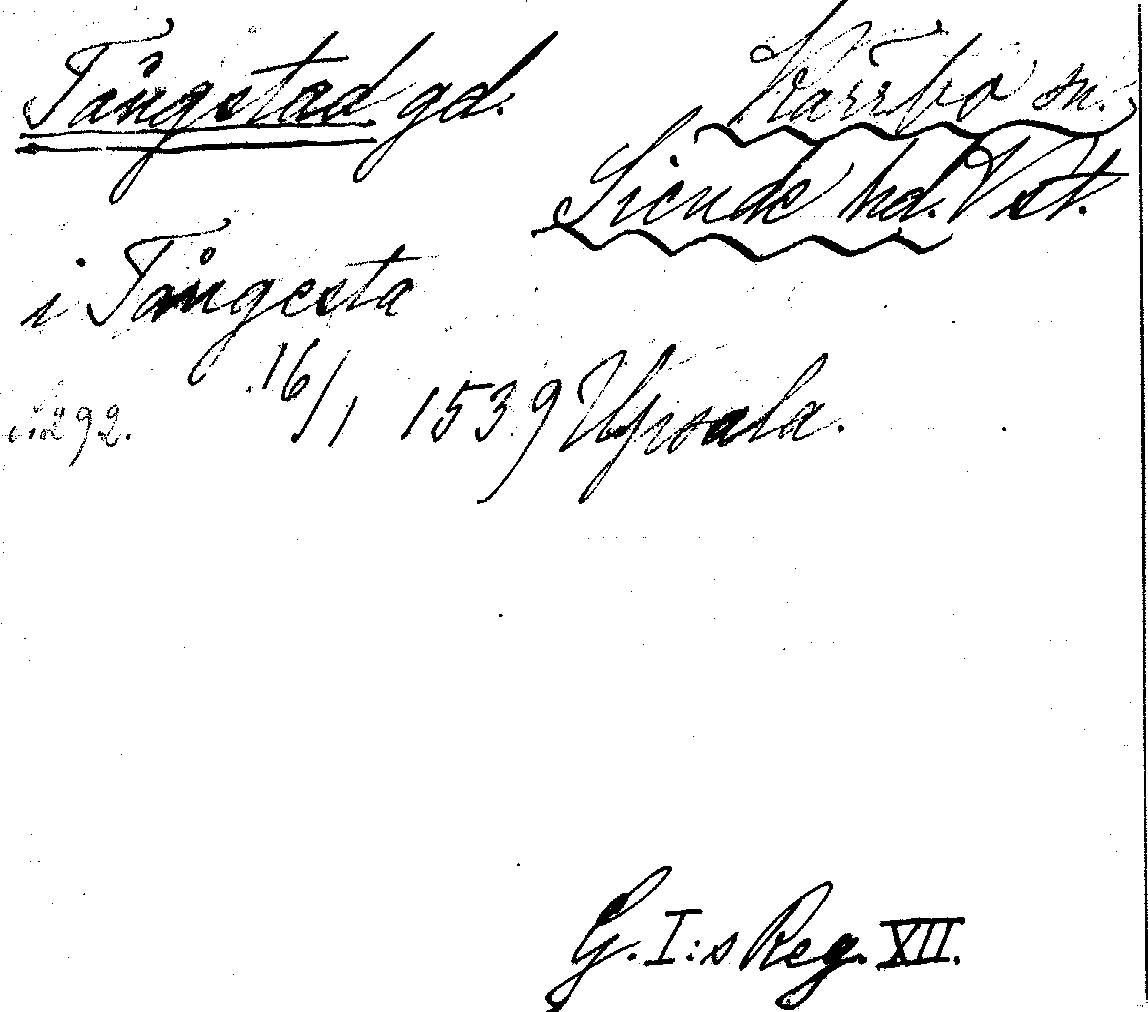 Tångstad gd.
Kärrbo sn.
Siende hd. Vst.
i Tångesta
16/1 1539 Upsala.
s. 292.
G. I:s Reg. XII.